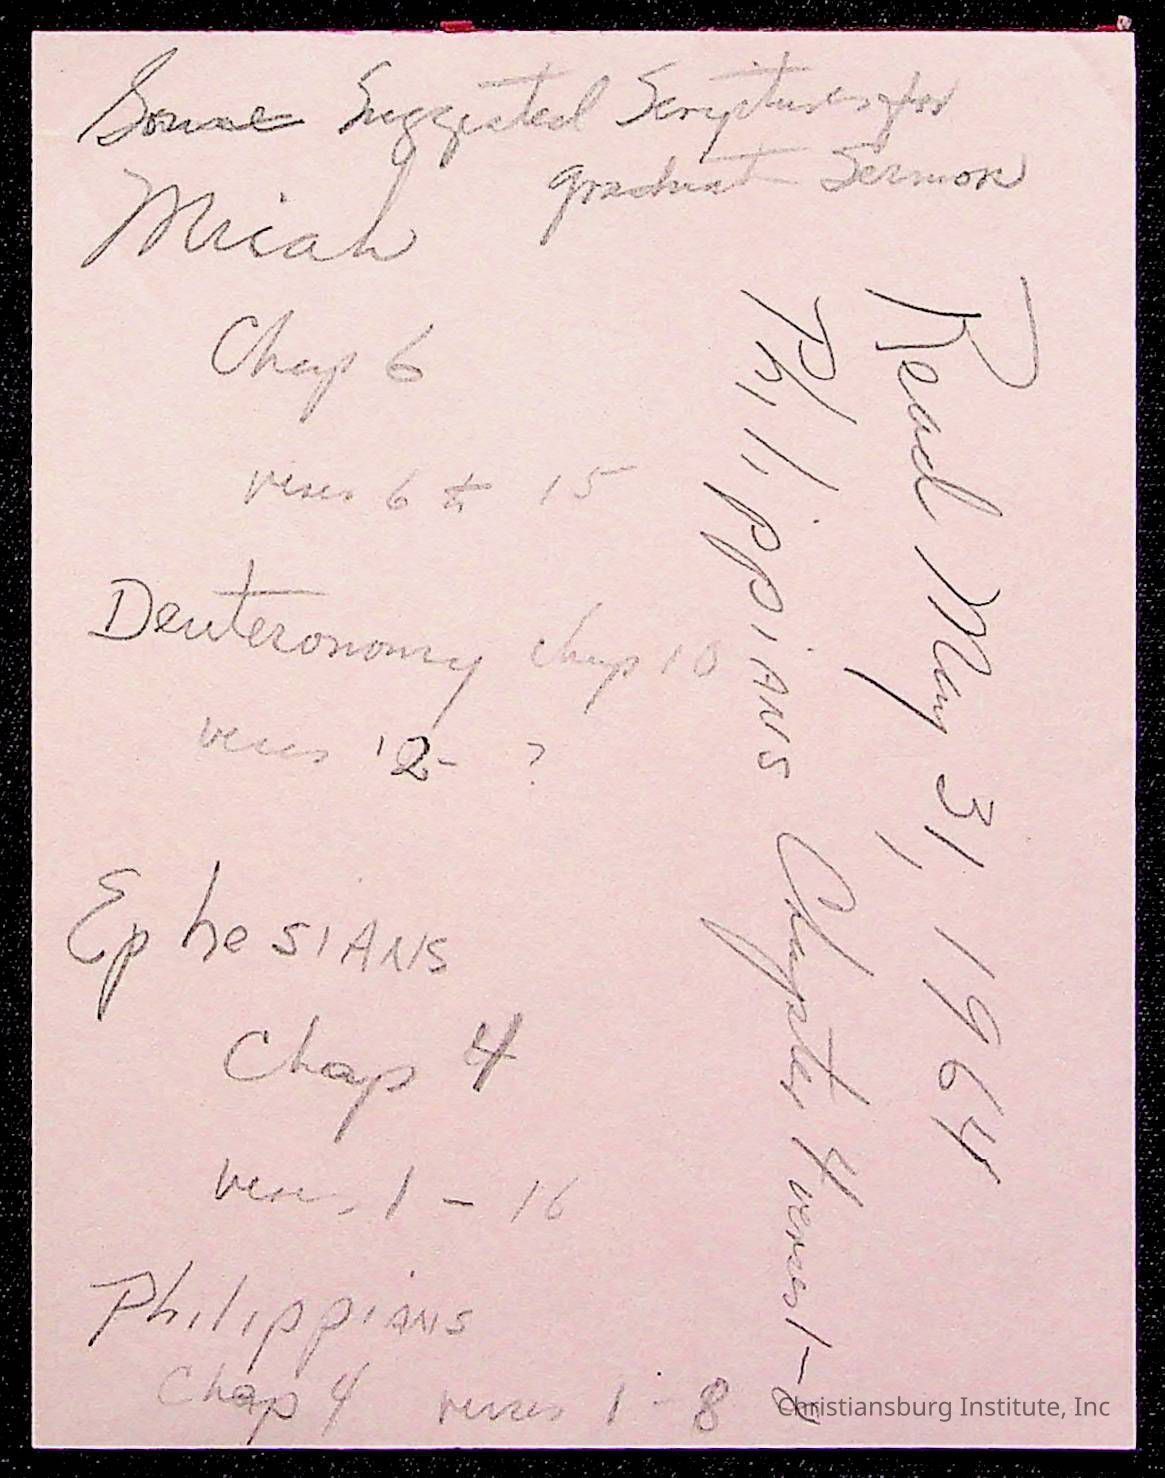 Some Suggested Scriptures for
graduate Sermon
Micah
Chap 6
verses 6 to 15
Deuteronomy chap 10
verses 12- ?
Ephesians
Chap 4
verses 1 - 16
Philippians
Chap 4 verses 1 - 8
Read May 31, 1964
Philippians Chapter 4 verses 1-8
Christiansburg Institute, Inc